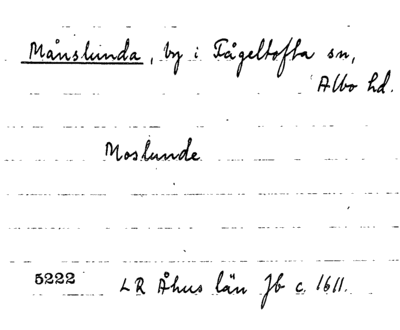 Månslunda, by i Fågeltofta sn,
Albo hd.
Moslunde
5222 LR Åhus län Jb c. 1611.